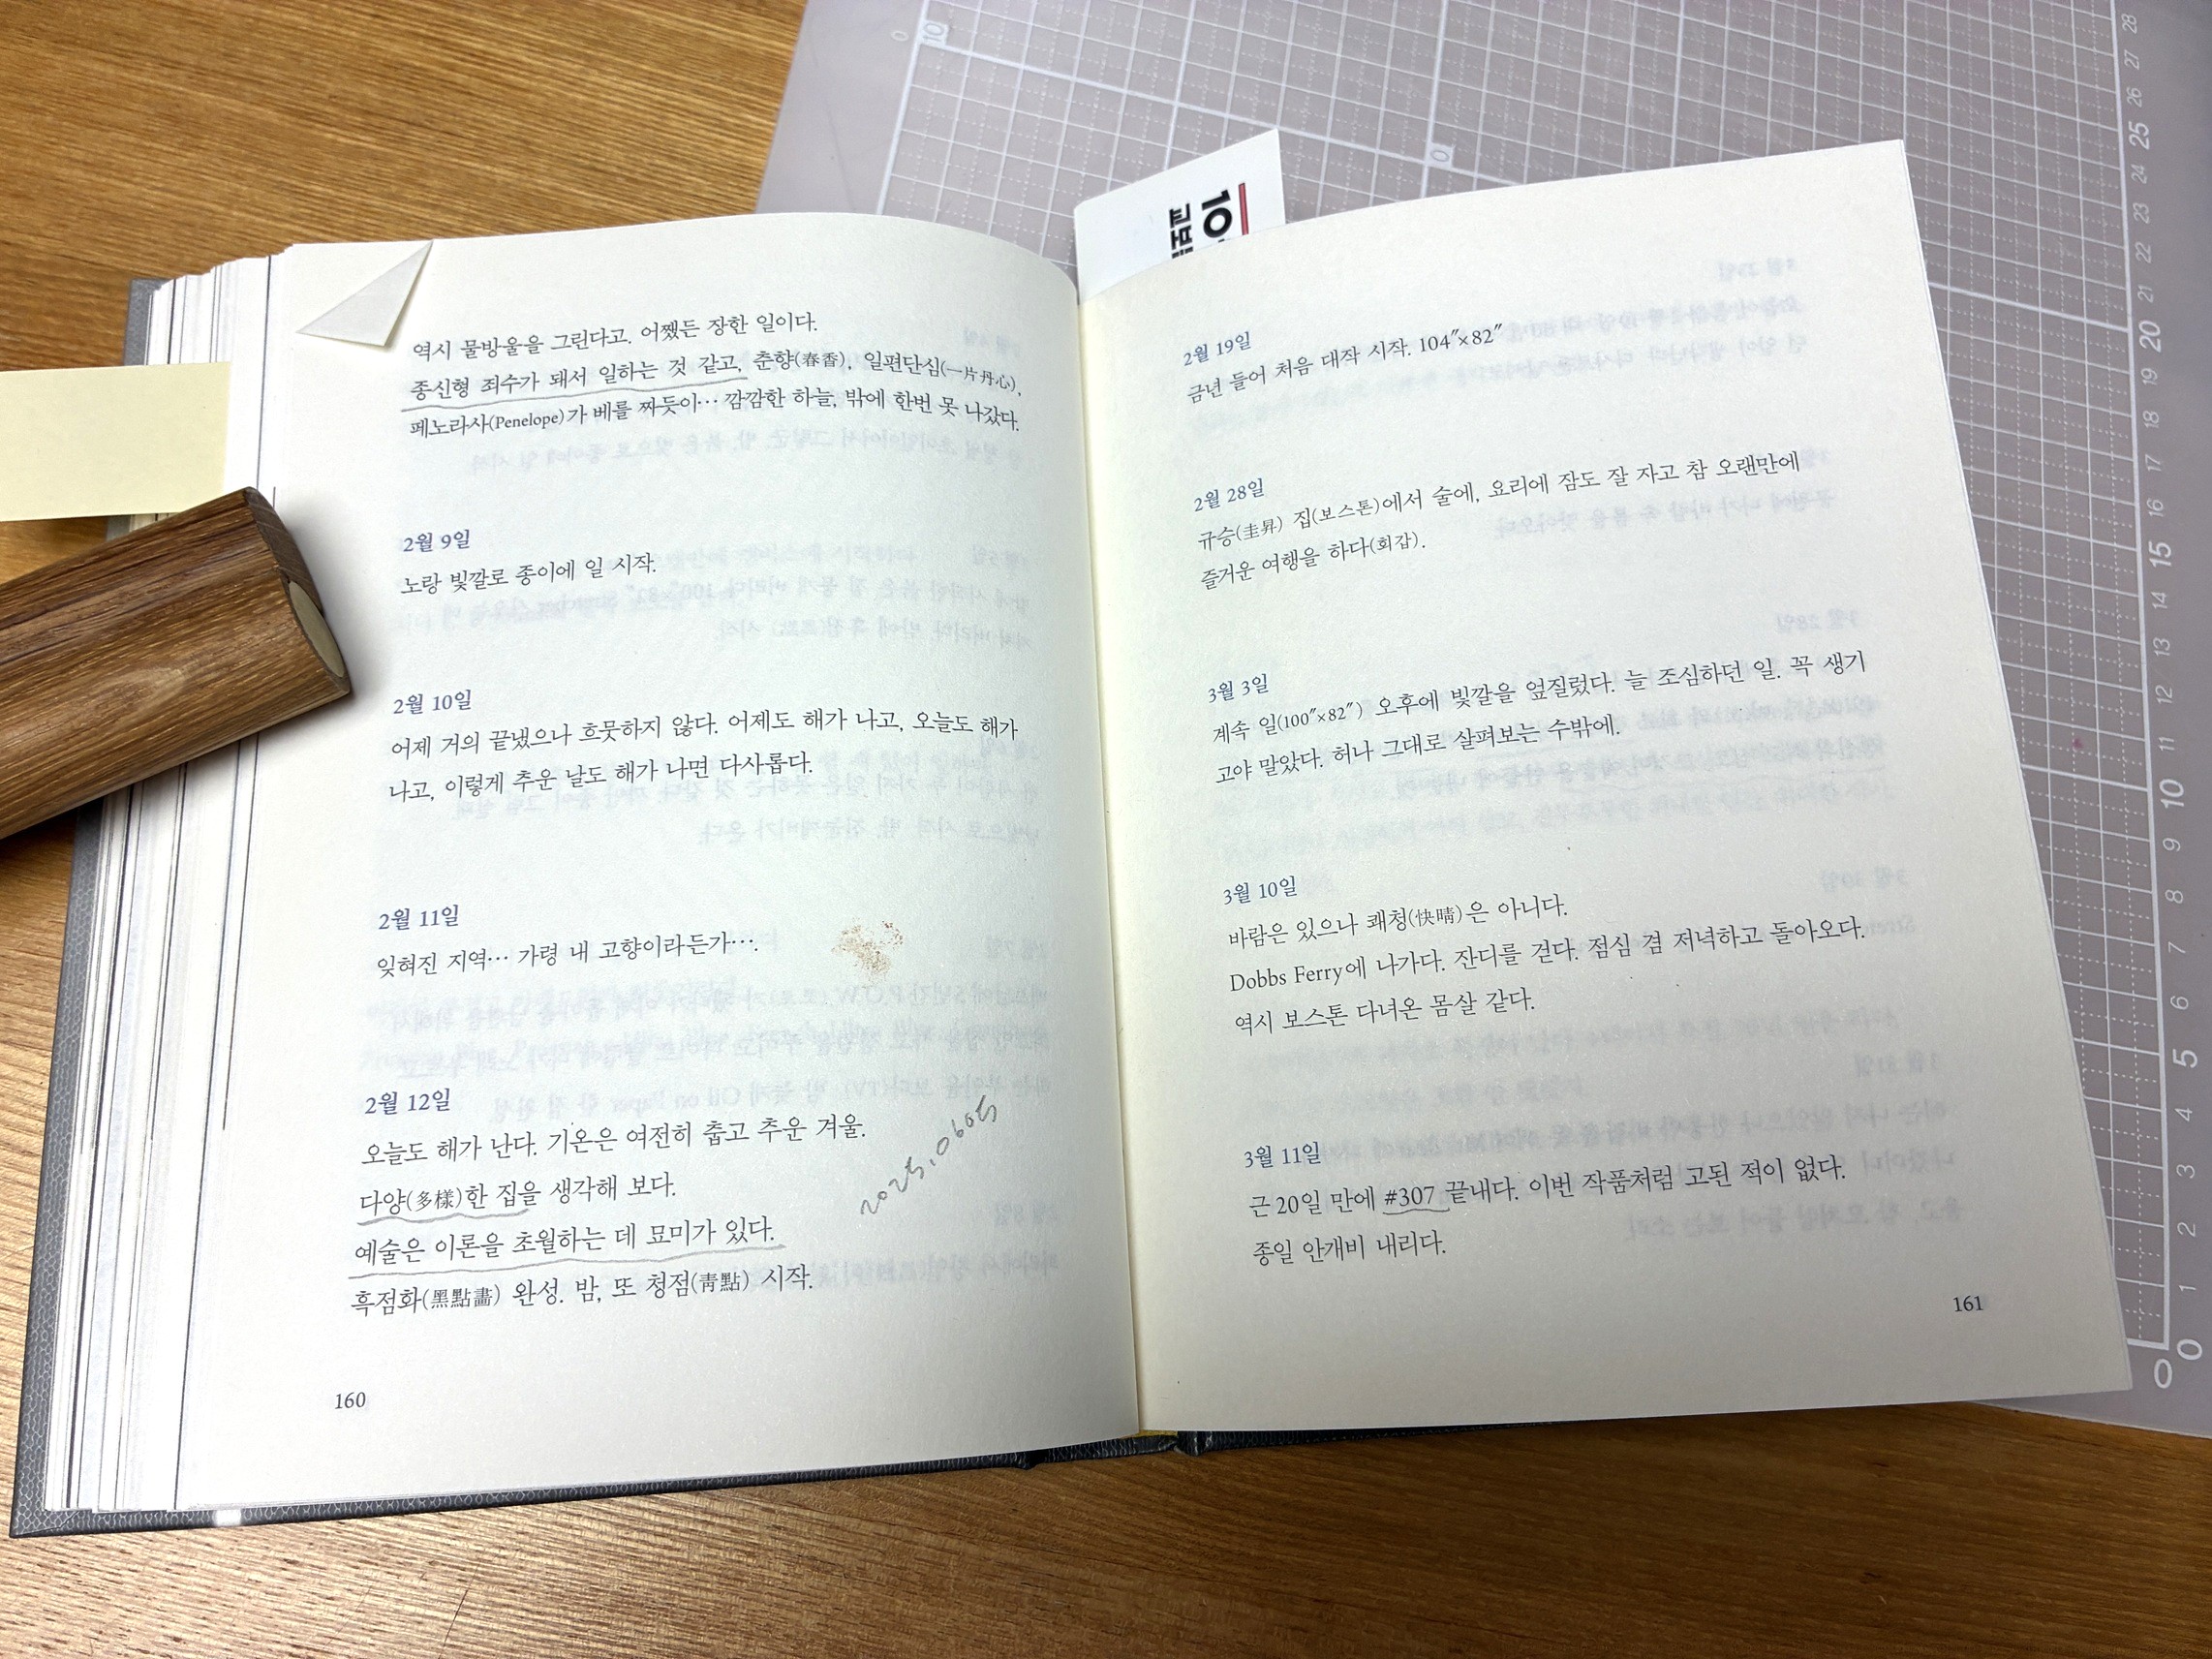 역시 물방울을 그린다고. 어쨌든 장한 일이다.
종신형 죄수가 돼서 일하는 것 같고, 춘향(春香), 일편단심(一片丹心),
페노라사(Penelope)가 베를 짜듯이… 깜깜한 하늘, 밖에 한번 못 나갔다.
2월 9일
노랑 빛깔로 종이에 일 시작.
2월 10일
어제 거의 끝냈으나 흐뭇하지 않다. 어제도 해가 나고, 오늘도 해가
나고, 이렇게 추운 날도 해가 나면 다사롭다.
2월 11일
잊혀진 지역… 가령 내 고향이라든가….
2월 12일
오늘도 해가 난다. 기온은 여전히 춥고 추운 겨울.
다양(多樣)한 집을 생각해 보다.
예술은 이론을 초월하는 데 묘미가 있다.
흑점화(黑點畵) 완성. 밤, 또 청점(靑點) 시작.
2025.0605
160
10
교보
2월 19일
금년 들어 처음 대작 시작. 104″×82″
2월 28일
규승(圭昇) 집(보스톤)에서 술에, 요리에 잠도 잘 자고 참 오랜만에
즐거운 여행을 하다(회갑).
3월 3일
계속 일(100″×82″) 오후에 빛깔을 엎질렀다. 늘 조심하던 일. 꼭 생기
고야 말았다. 허나 그대로 살펴보는 수밖에.
3월 10일
바람은 있으나 쾌청(快晴)은 아니다.
Dobbs Ferry에 나가다. 잔디를 걷다. 점심 겸 저녁하고 돌아오다.
역시 보스톤 다녀온 몸살 같다.
3월 11일
근 20일 만에 #307 끝내다. 이번 작품처럼 고된 적이 없다.
종일 안개비 내리다.
161
0
10
0
28
27
26
25
24
23
22
21
20
19
18
17
16
15
14
13
12
11
10
9
8
7
6
5
4
3
2
1
0
0